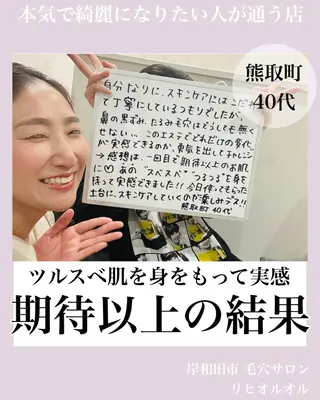 本気で綺麗になりたい人が通う店
熊取町
40代
自分なりに、スキンケアにはこだわっ
て丁寧にしているつもりでしたが、
鼻の黒ずみ、たるみ毛穴はどうしても無く
せない… このエステでどれだけの変化
が実感できるのか、勇気を出してチャレンジ
→感想は、一回目で期待以上のお肌
に♡ あの"スベスベ""つるつる"を身を
持って実感できました!! 今日作ってもらった
土台に、スキンケアしていくのが楽しみデス!!
熊取町 40代
ツルスベ肌を身をもって実感
期待以上の結果
岸和田市 毛穴サロン
リヒオルオル